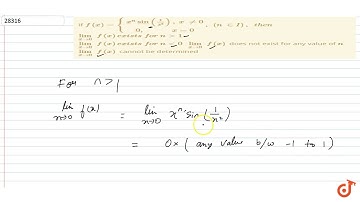 28316
If f(x) = { xⁿ sin (1/x²), x ≠ 0
0, x = 0 , (n ∈ I), then
lim x→0 f(x) exists for n > 1
lim x→0 f(x) exists for n < 0 lim x→0 f(x) does not exist for any value of n
lim x→0 f(x) cannot be determined
For n > 1
lim x→0 f(x) = lim x→0 xⁿ sin (1/x²)
= 0 × ( any value b/w -1 to 1 )